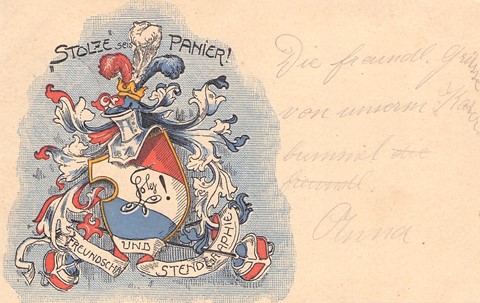 "STOLZE" sei's PANIER!
Die freundl. Grüße
von unserm
bummel die
freundl.
Anna
FREUNDSCHAFT UND STENOGRAPHIE